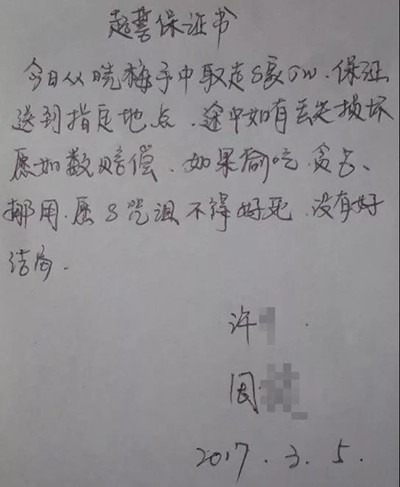 起誓保证书
今日从晓梅手中取走8家GW.保证
送到指定地点.途中如有丢失损坏
愿如数赔偿.如果偷吃、贪占、
挪用.愿8咒诅不得好死.没有好
结局.
许
周
2017.3.5.